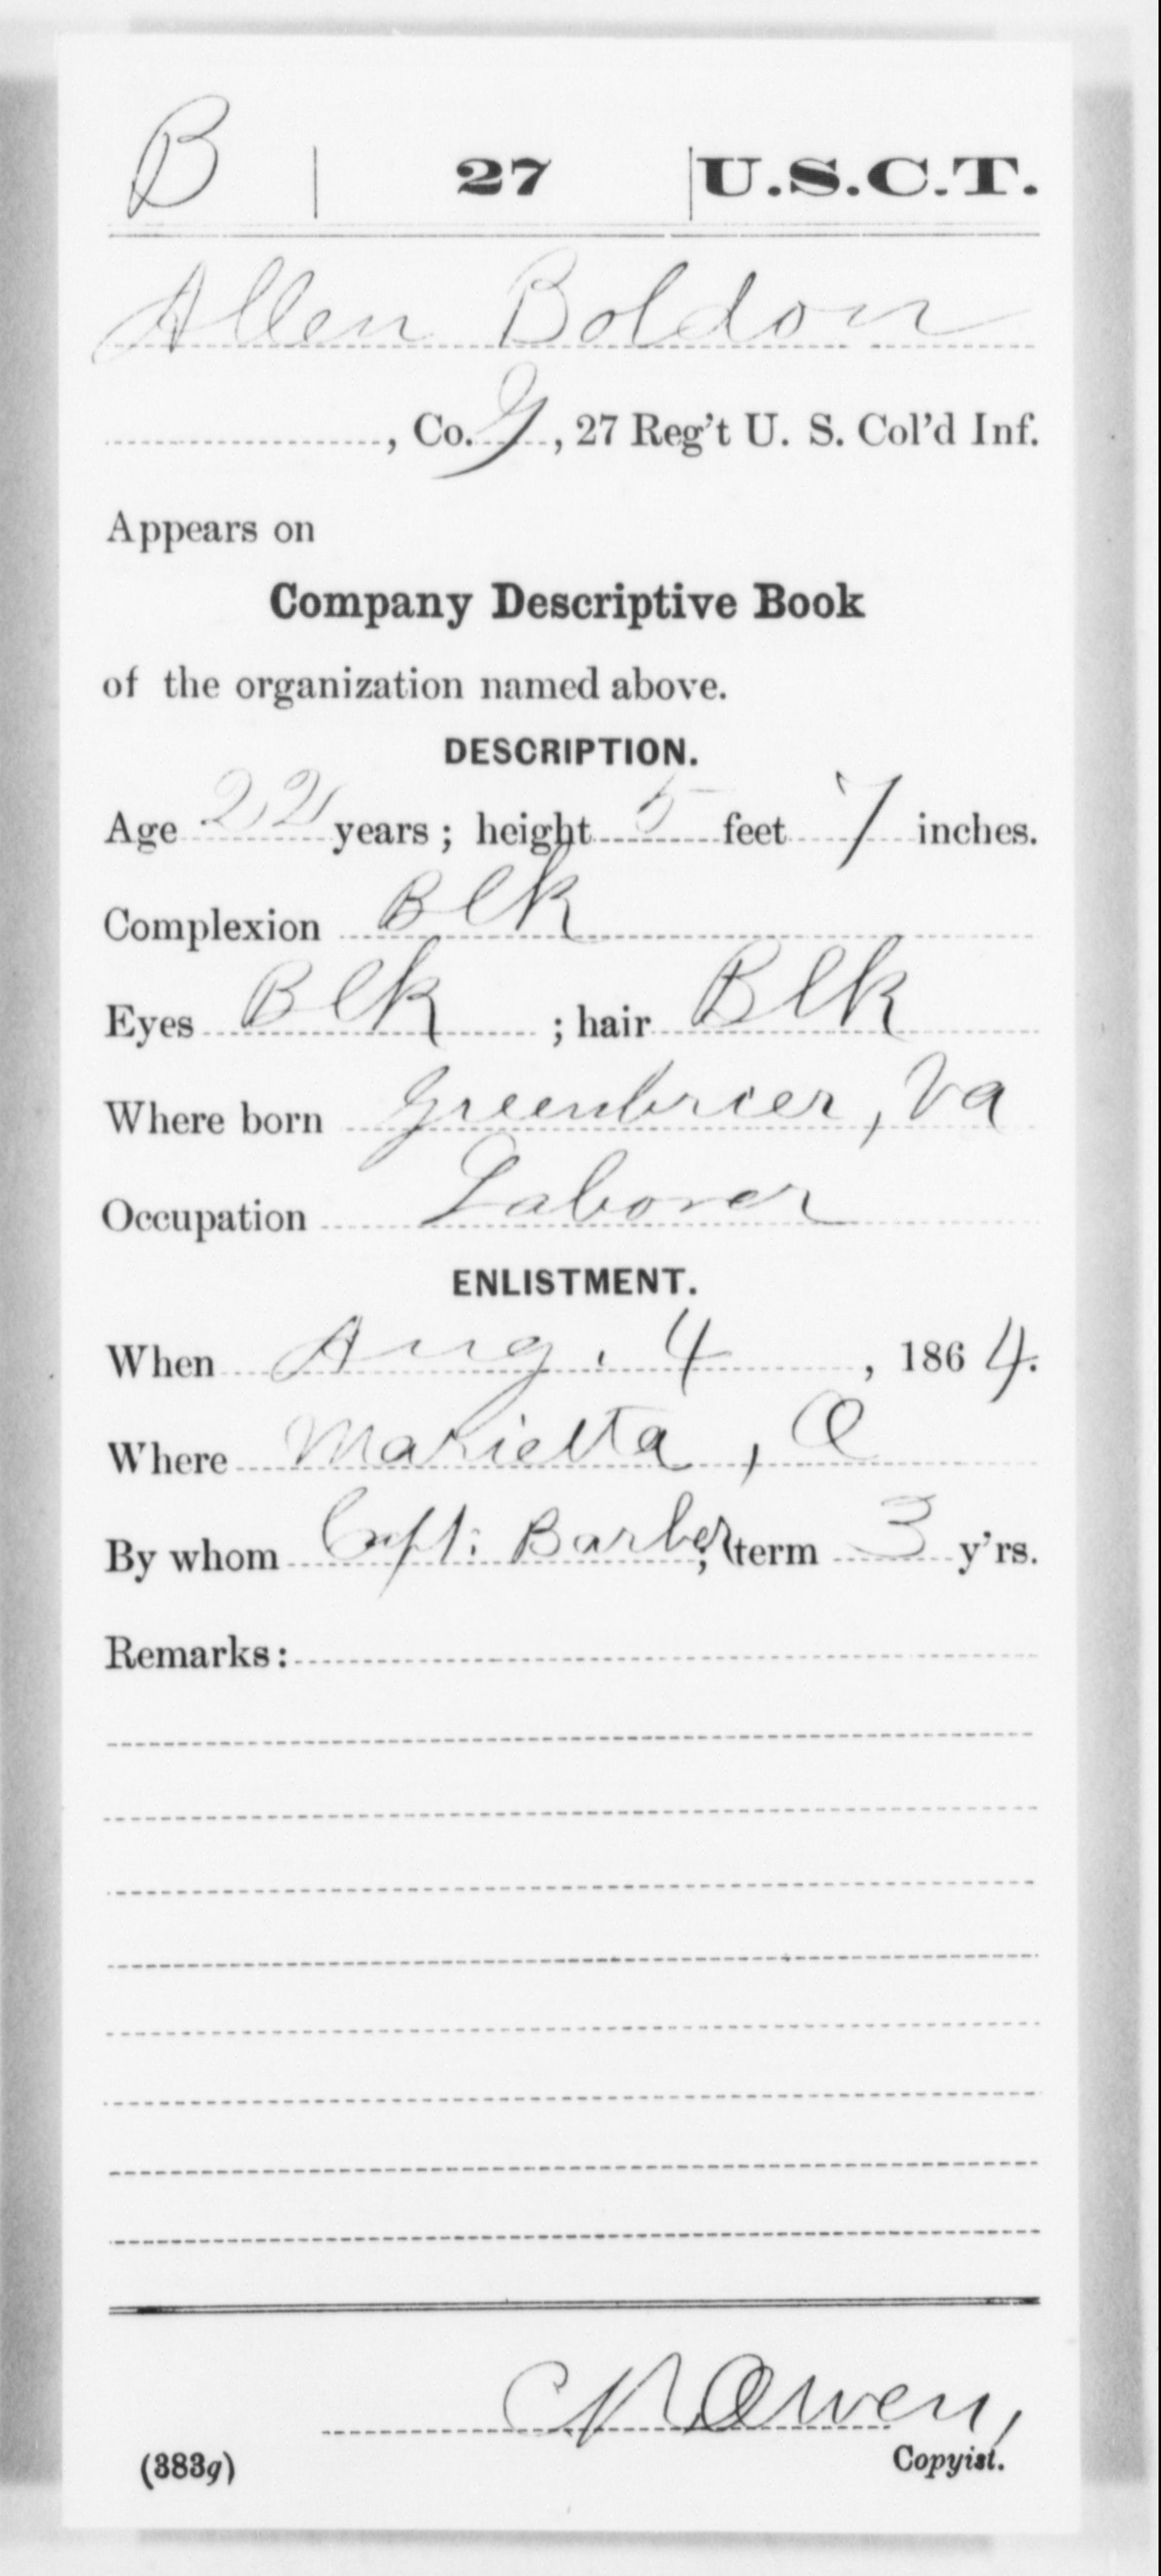 B | 27 | U.S.C.T.
Allen Boldon
, Co. G, 27 Reg't U. S. Col'd Inf.
Appears on
Company Descriptive Book
of the organization named above.
DESCRIPTION.
Age 22 years; height 5 feet 7 inches.
Complexion Blk
Eyes Blk; hair Blk
Where born Greenbrier, Va
Occupation Laborer
ENLISTMENT.
When Aug. 4, 1864.
Where Marietta, O
By whom Capt. Barber; term 3 y'rs.
Remarks:
Owen,
(383g) Copyist.